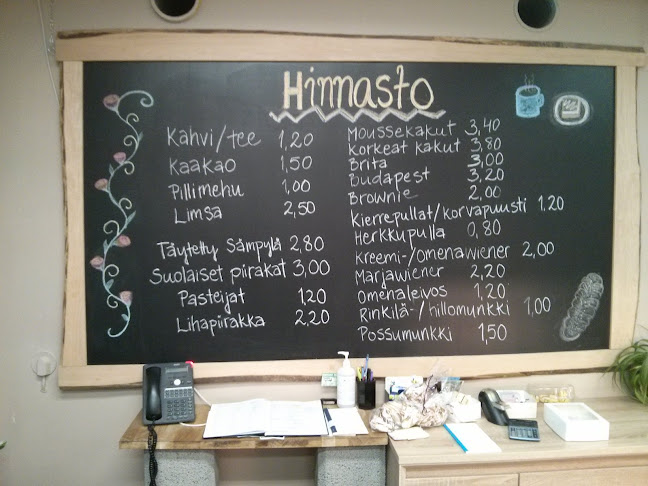 Hinnasto
Kahvi/tee 1,20
Kaakao 1,50
Pillimehu 1,00
Limsa 2,50
Täytetty Sämpylä 2,80
Suolaiset piirakat 3,00
Pasteijat 1,20
Lihapiirakka 2,20
Moussekakut 3,40
Korkeat kakut 3,80
Brita 3,00
Budapest 3,20
Brownie 2,00
Kierrepullat/korvapuusti 1,20
Herkkupulla 0,80
Kreemi-/omenawiener 2,00
Marjawiener 2,20
Omenaleivos 1,20
Rinkilä-/hillomunkki 1,00
Possumunkki 1,50